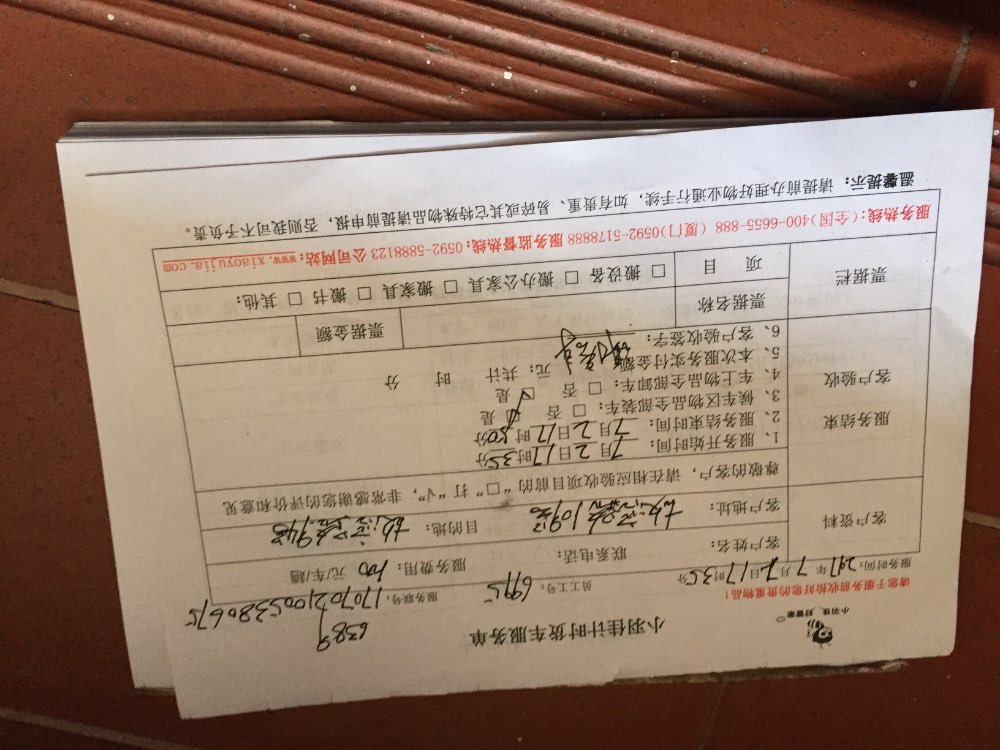 小羽佳，好管家
小羽佳计时货车服务单
6389
请您于服务前收拾好您的贵重物品！
服务时间：2017年7月2日17时35分 员工工号：6915 服务联号：170702100538067
客户资料
客户姓名： 联系电话： 服务费用：100 元/车/趟
客户地址： 目的地：
服务结束
客户验收
尊敬的客户，请在相应验收项目前的“□”打“√”，非常感谢您的评价和意见
1、服务开始时间：7月2日17时35分
2、服务结束时间：7月2日17时50分
3、候车区物品全部装车：□ 否 ☑ 是
4、车上物品全部卸车：□ 否 ☑ 是
5、本次服务实付金额 元；共计 时 分
6、客户验收签字：
票据栏
票据名称 票据金额
项 目 □ 搬设备 □ 搬办公家具 □ 搬家具 □ 搬书 □ 其他：
服务热线：(全国)400-6655-888 (厦门)0592-5178888 服务监督热线：0592-5888123 公司网站：www.xiaoyujia.com
温馨提示：请提前办理好物业通行手续，如有贵重、易碎或其它特殊物品请提前申报，否则我司可不予负责。